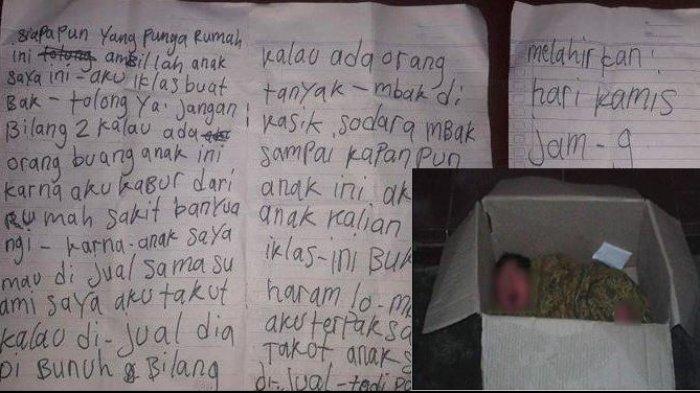 siapapun yang punga rumah
ini tolong ambillah anak
saya ini - aku iklas buat
Bak - tolong ya. jangan
Bilang 2 kalau ada
orang buang anak ini
karna aku kabur dari
rumah sakit banyua
ngi - karna - anak saya
mau di jual sama su
ami saya aku takut
kalau di - jual dia
Di BUNUH Bilang
kalau ada orang
tanyak - mbak di
kasik sodara mbak
sampai kapan pun
anak ini ak
anak kalian
iklas - ini BUK
haram lo - m
aku terpaksa
takot anak s
di - jual - tadi pa
melahirkan:
hari kamis
jam - 9